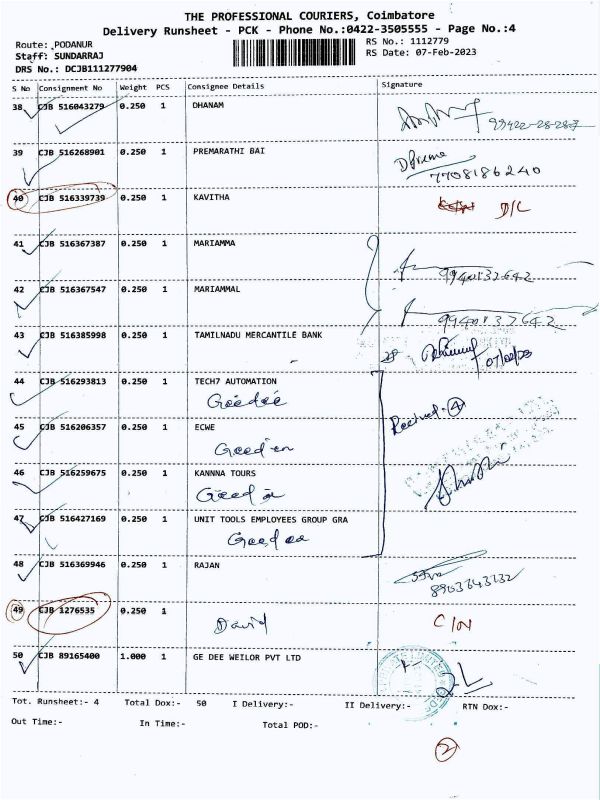 THE PROFESSIONAL COURIERS, Coimbatore
Delivery Runsheet - PCK - Phone No.:0422-3505555 - Page No.:4
Route: PODANUR
RS No.: 1112779
Staff: SUNDARRAJ
RS Date: 07-Feb-2023
DRS No.: DCJB111277904
S No Consignment No Weight PCS Consignee Details Signature
38 CJB 516043279 0.250 1 DHANAM
39 CJB 516268901 0.250 1 PREMARATHI BAI
7708186240
40 CJB 516339739 0.250 1 KAVITHA D/L
41 CJB 516367387 0.250 1 MARIAMMA
9940132642
42 CJB 516367547 0.250 1 MARIAMMAL
9940132642
43 CJB 516385998 0.250 1 TAMILNADU MERCANTILE BANK
07/02/23
44 CJB 516293813 0.250 1 TECH7 AUTOMATION
Geedee
Received 4
45 CJB 516206357 0.250 1 ECWE
46 CJB 516259675 0.250 1 KANNNA TOURS
47 CJB 516427169 0.250 1 UNIT TOOLS EMPLOYEES GROUP GRA
48 CJB 516369946 0.250 1 RAJAN
8903643232
49 CJB 1276535 0.250 1 David C/N
50 CJB 89165400 1.000 1 GE DEE WEILOR PVT LTD
Tot. Runsheet:- 4 Total Dox:- 50 I Delivery:- II Delivery:- RTN Dox:-
Out Time:- In Time:- Total POD:-
2